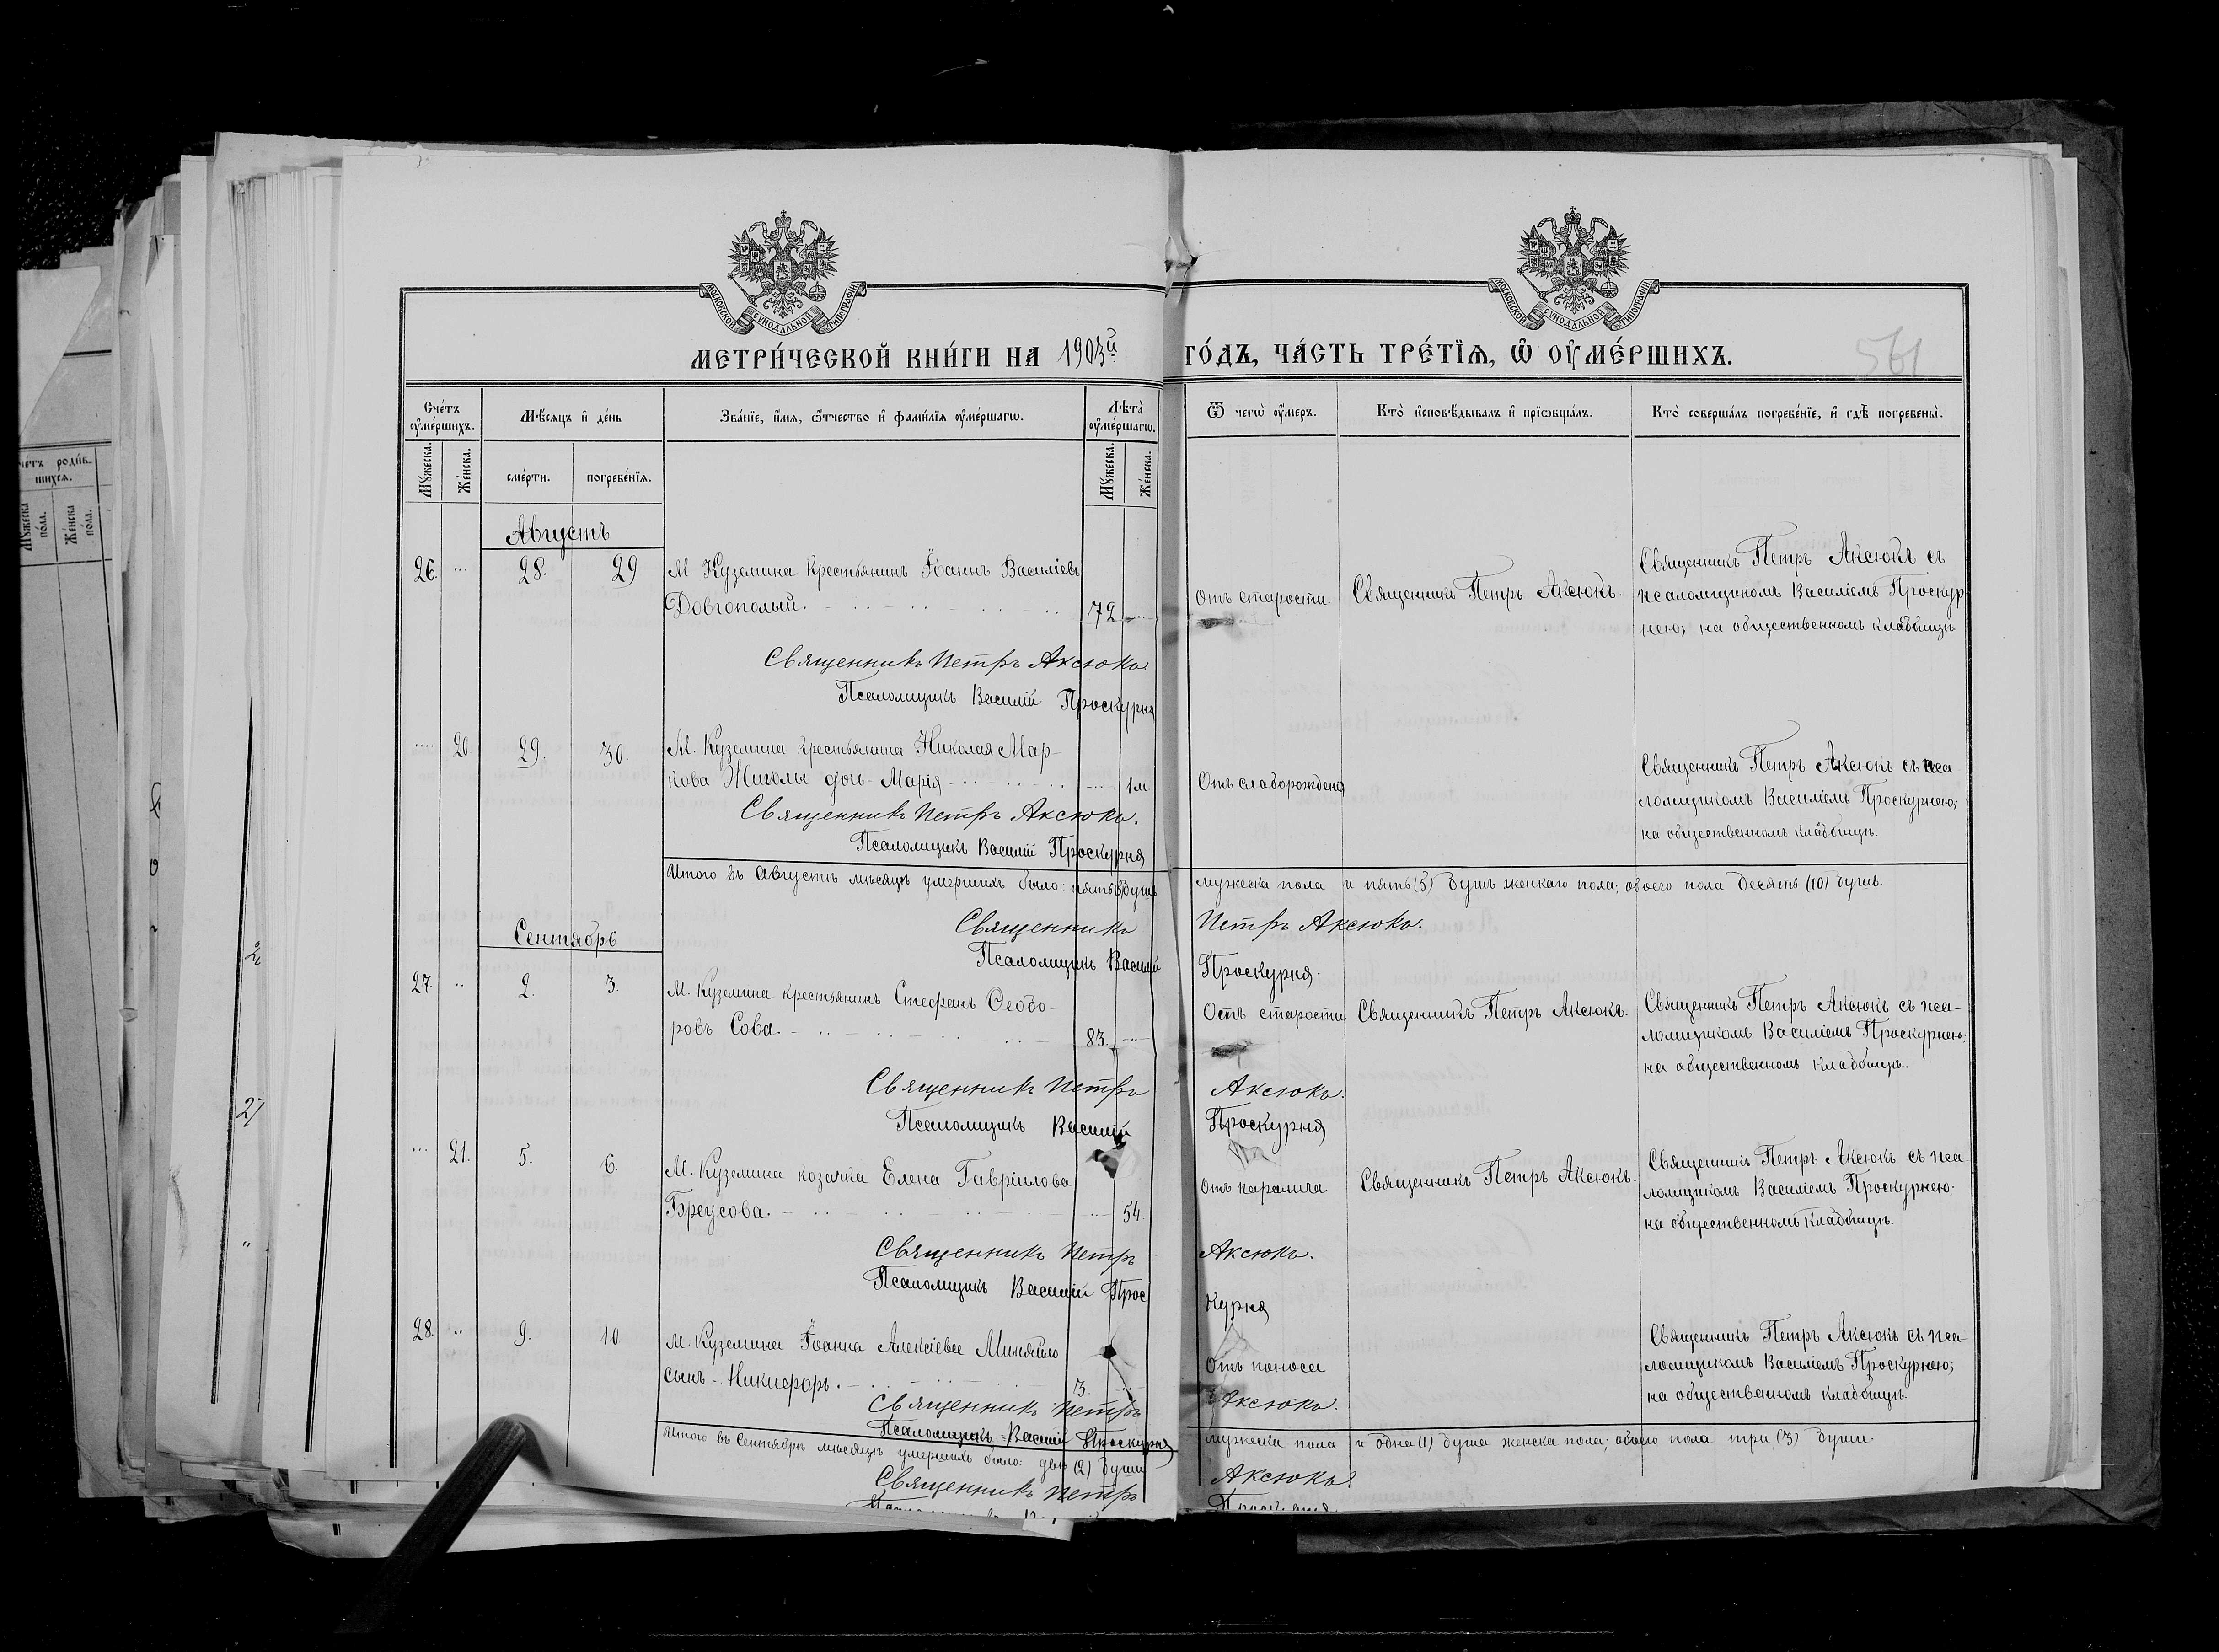 МОСКОВСКОЙ СУНОДАЛЬНОЙ ТИПОГРАФІИ
МОСКОВСКОЙ СУНОДАЛЬНОЙ ТИПОГРАФІИ
МЕТРИ́ЧЕСКОЙ КНИ́ГИ НА 1903й ГО́ДЪ, ЧА́СТЬ ТРЕ́ТЇѦ, Ѡ҆ ОУ҆МЕ́РШИХЪ.
561
Сче́тъ оу҆ме́ршихъ.
Мѣ́сяцъ и҆ де́нь
Зва́нїе, и҆́мя, ѻ҆́тчество и҆ фами́лїя оу҆ме́ршагѡ.
Лѣта̀ оу҆ме́ршагѡ.
Ѿ чегѡ̀ оу҆́меръ.
Кто̀ и҆сповѣ́дывалъ и҆ прїѡбща́лъ.
Кто̀ соверша́лъ погребе́нїе, и҆ гдѣ̀ погребены̀.
Мꙋ́жеска.
Же́нска.
сме́рти.
погребе́нїя.
Мꙋ́жеска.
Же́нска.
Августъ
26. ... 28. 29 М. Куземина крестьянинъ Іоаннъ Василіевъ
Довгополый. 72
Отъ старости.
Священникъ Петръ Аксюкъ.
Священникъ Петръ Аксюкъ съ
псаломщикомъ Василіемъ Проскур
нею; на общественномъ кладбищѣ
Священникъ Петръ Аксюкъ
Псаломщикъ Василій Проскурня
.... 20. 29. 30. М. Куземина крестьянина Николая Мар-
кова Жиголы дочь - Марія 1м.
Отъ слаборожденія
Священникъ Петръ Аксюкъ съ пса
ломщикомъ Василіемъ Проскурнею;
на общественномъ кладбищѣ.
Священникъ Петръ Аксюкъ.
Псаломщикъ Василій Проскурня
Итого въ Августѣ мѣсяцѣ умершихъ было: пять (5) душъ мужеска пола и пять (5) душъ женскаго пола; обоего пола десять (10) душъ.
Священникъ Петръ Аксюкъ.
Псаломщикъ Василій Проскурня.
Сентябрь
27. .. 2. 3. М. Куземина крестьянинъ Стефанъ Ѳеодо-
ровъ Сова. 83.
Отъ старости
Священникъ Петръ Аксюкъ.
Священникъ Петръ Аксюкъ съ пса-
ломщикомъ Василіемъ Проскурнею;
на общественномъ кладбищѣ.
Священникъ Петръ Аксюкъ.
Псаломщикъ Василій Проскурня
... 21. 5. 6. М. Куземина козачка Елена Гавріилова
Бреусова. 54.
Отъ паралича
Священникъ Петръ Аксюкъ.
Священникъ Петръ Аксюкъ съ пса
ломщикомъ Василіемъ Проскурнею.
на общественномъ кладбищѣ.
Священникъ Петръ Аксюкъ.
Псаломщикъ Василій Проскурня
28. .. 9. 10. М. Куземина Іоанна Алексіева Миняйло
сынъ - Никифоръ. 3.
Отъ поноса
Священникъ Петръ Аксюкъ съ пса-
ломщикомъ Василіемъ Проскурнею;
на общественномъ кладбищѣ.
Священникъ Петръ Аксюкъ.
Псаломщикъ Василій Проскурня
Итого въ Сентябрѣ мѣсяцѣ умершихъ было: двѣ (2) души мужеска пола и одна (1) душа женска пола; обоего пола три (3) души.
Священникъ Петръ Аксюкъ